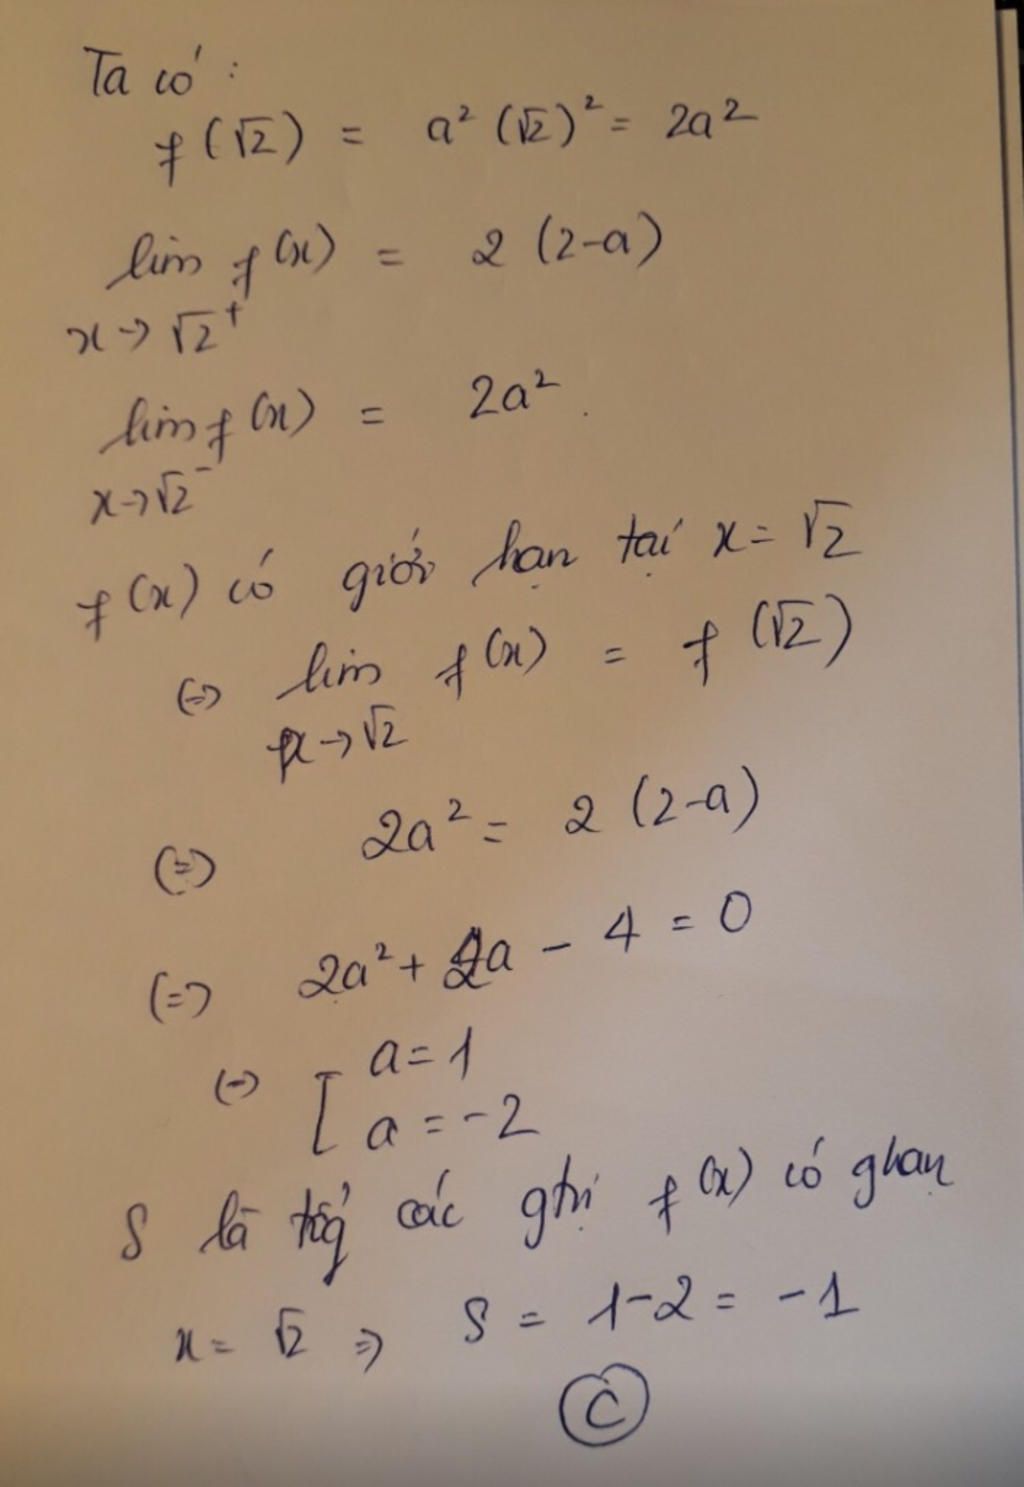 Ta có :
f(√2) = a² (√2)² = 2a²
lim f(x) = 2 (2-a)
x→√2⁺
lim f(x) = 2a² .
x→√2⁻
f(x) có giới hạn tại x = √2
(=) lim f(x) = f(√2)
x→√2
(=) 2a² = 2 (2-a)
(=) 2a² + 2a - 4 = 0
(=) [ a = 1
a = -2
S là tổg các gtrị f(x) có ghạn
x = √2 => S = 1-2 = -1
C